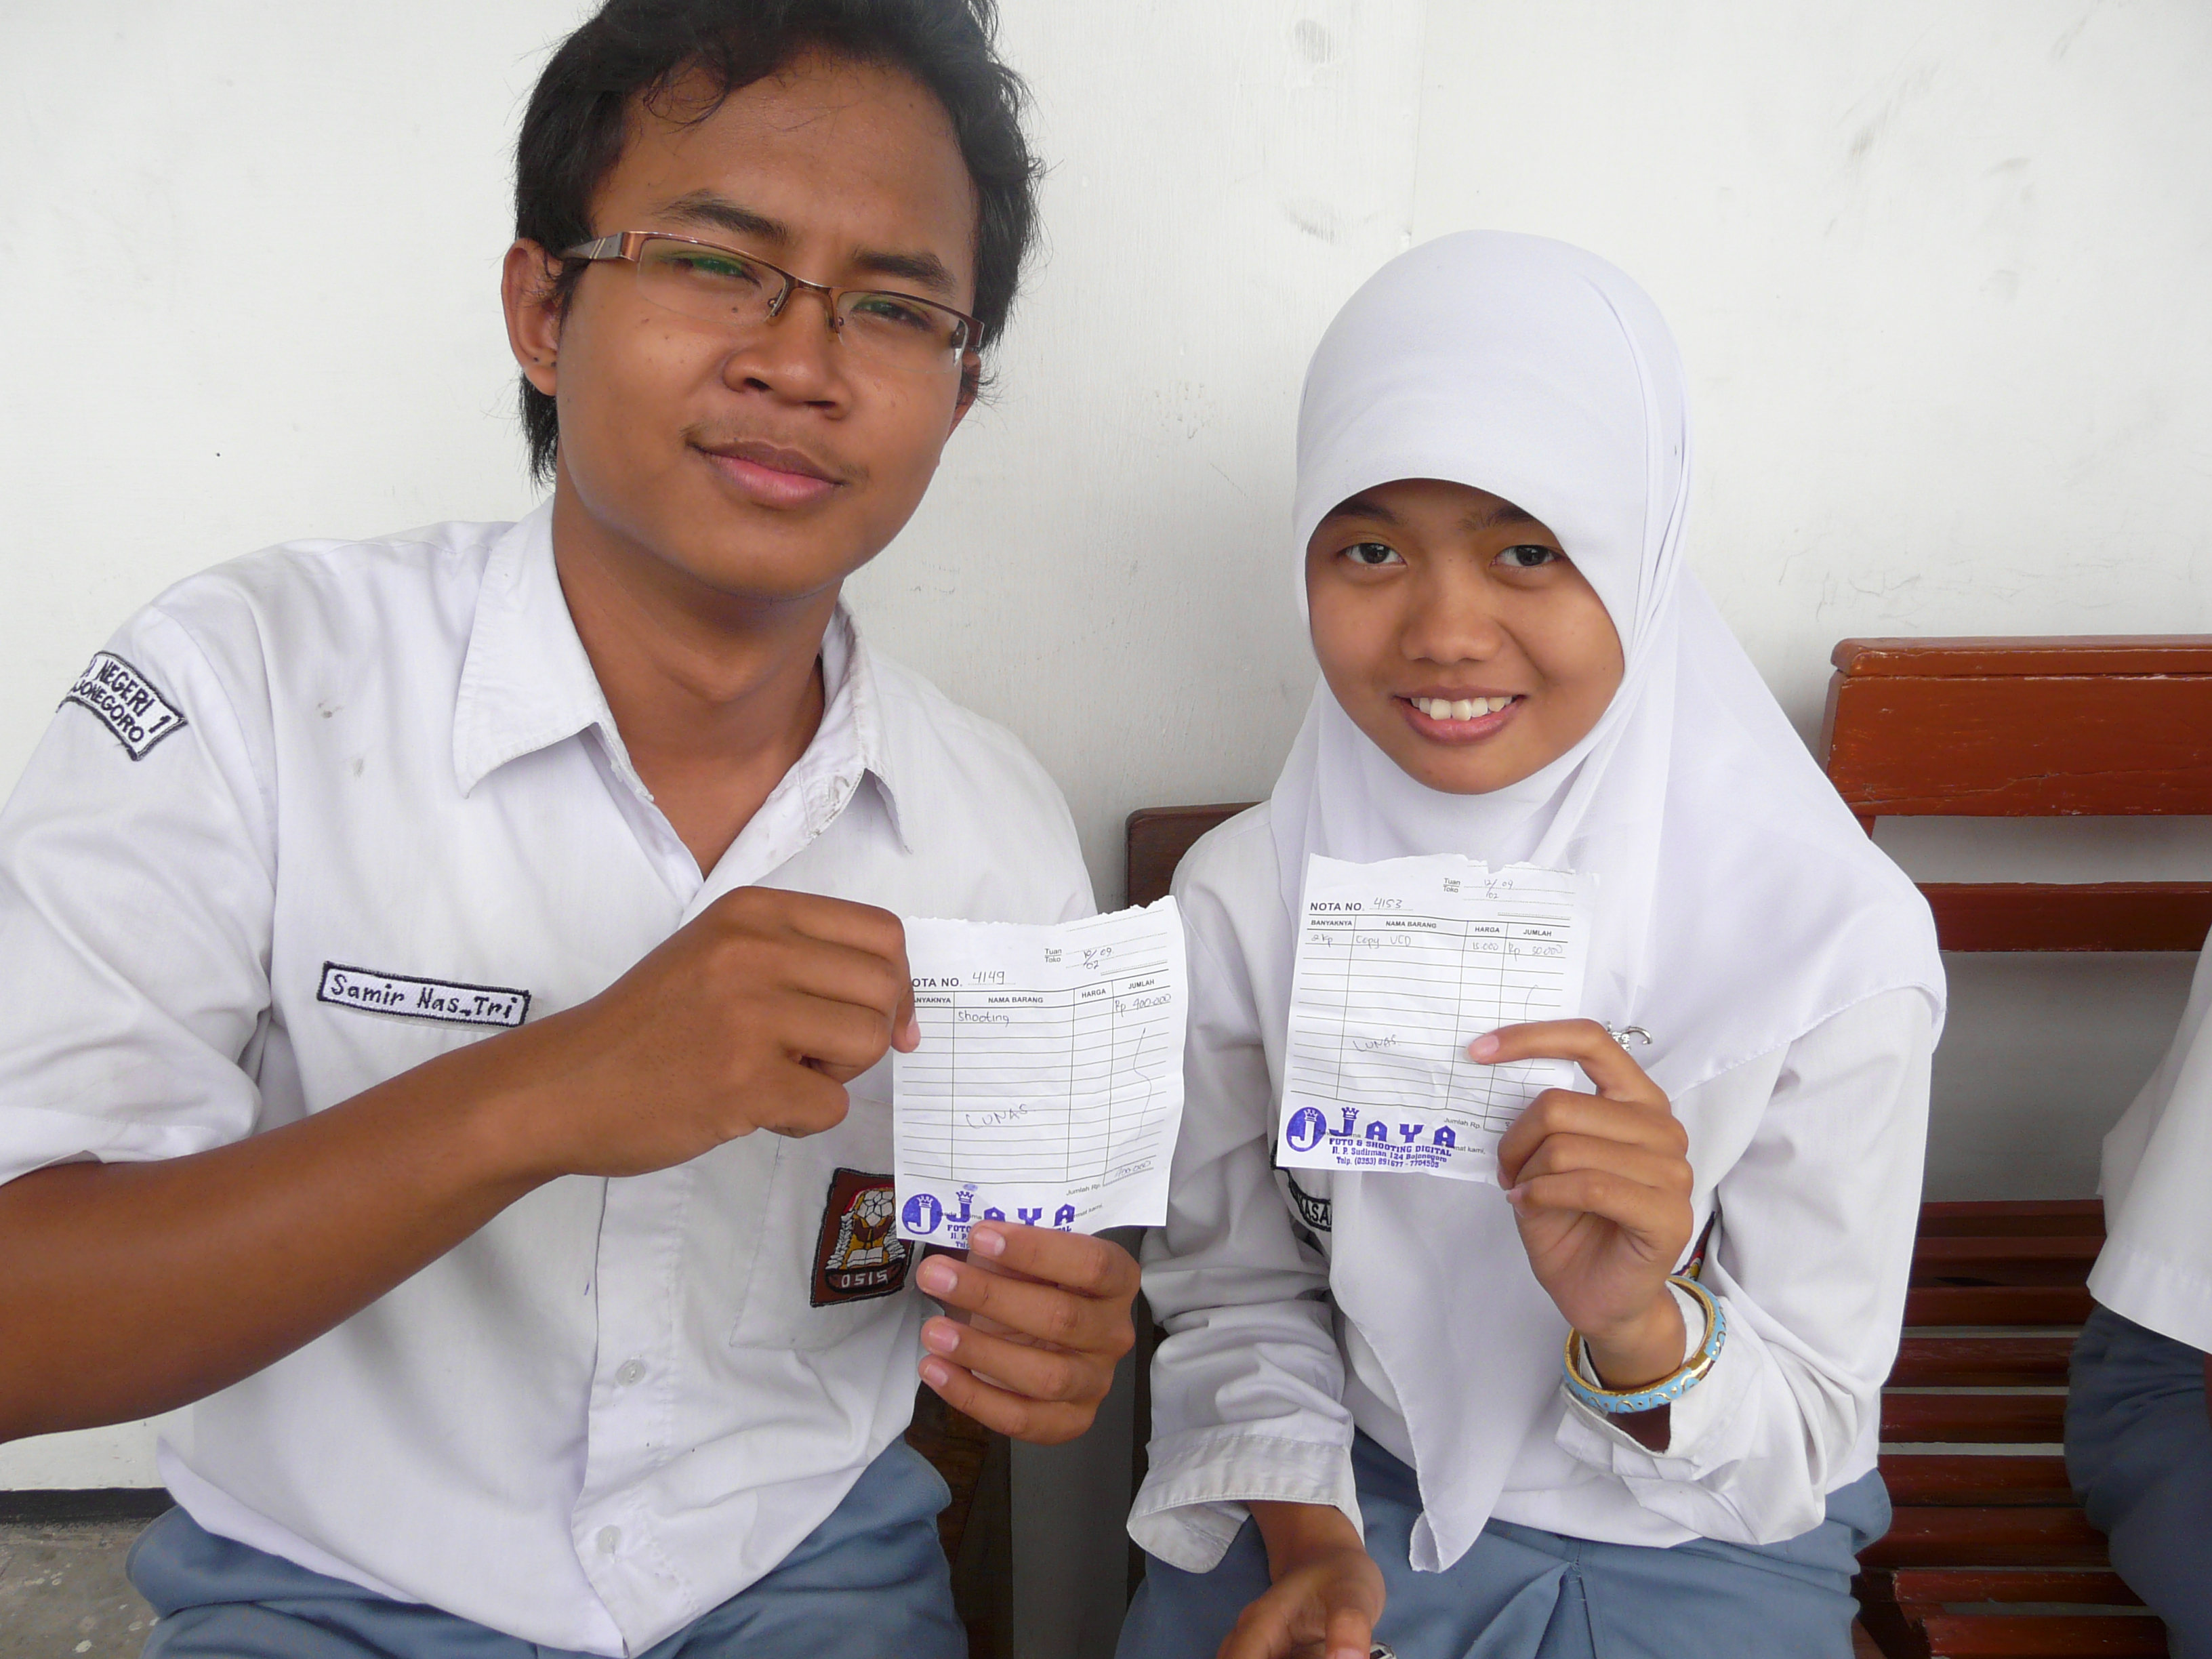 NEGERI 1
JONEGORO
Samir Nas_Tri
OSIS
Tuan
Toko
12/02 09
OTA NO. 4149
NYAKNYA NAMA BARANG HARGA JUMLAH
Shooting Rp 400.000
LUNAS
Jumlah Rp.
400.000
J JAYA
mat kami,
FOTO
Jl. P.
Tuan
Toko
12/02 09
NOTA NO. 4153
BANYAKNYA NAMA BARANG HARGA JUMLAH
2 Kp Copy VCD 15.000 Rp 30.000
LUNAS
Jumlah Rp.
J JAYA
mat kami,
FOTO & SHOOTING DIGITAL
Jl. P. Sudirman 124 Bojonegoro
Telp. (0353) 891677 - 7704505